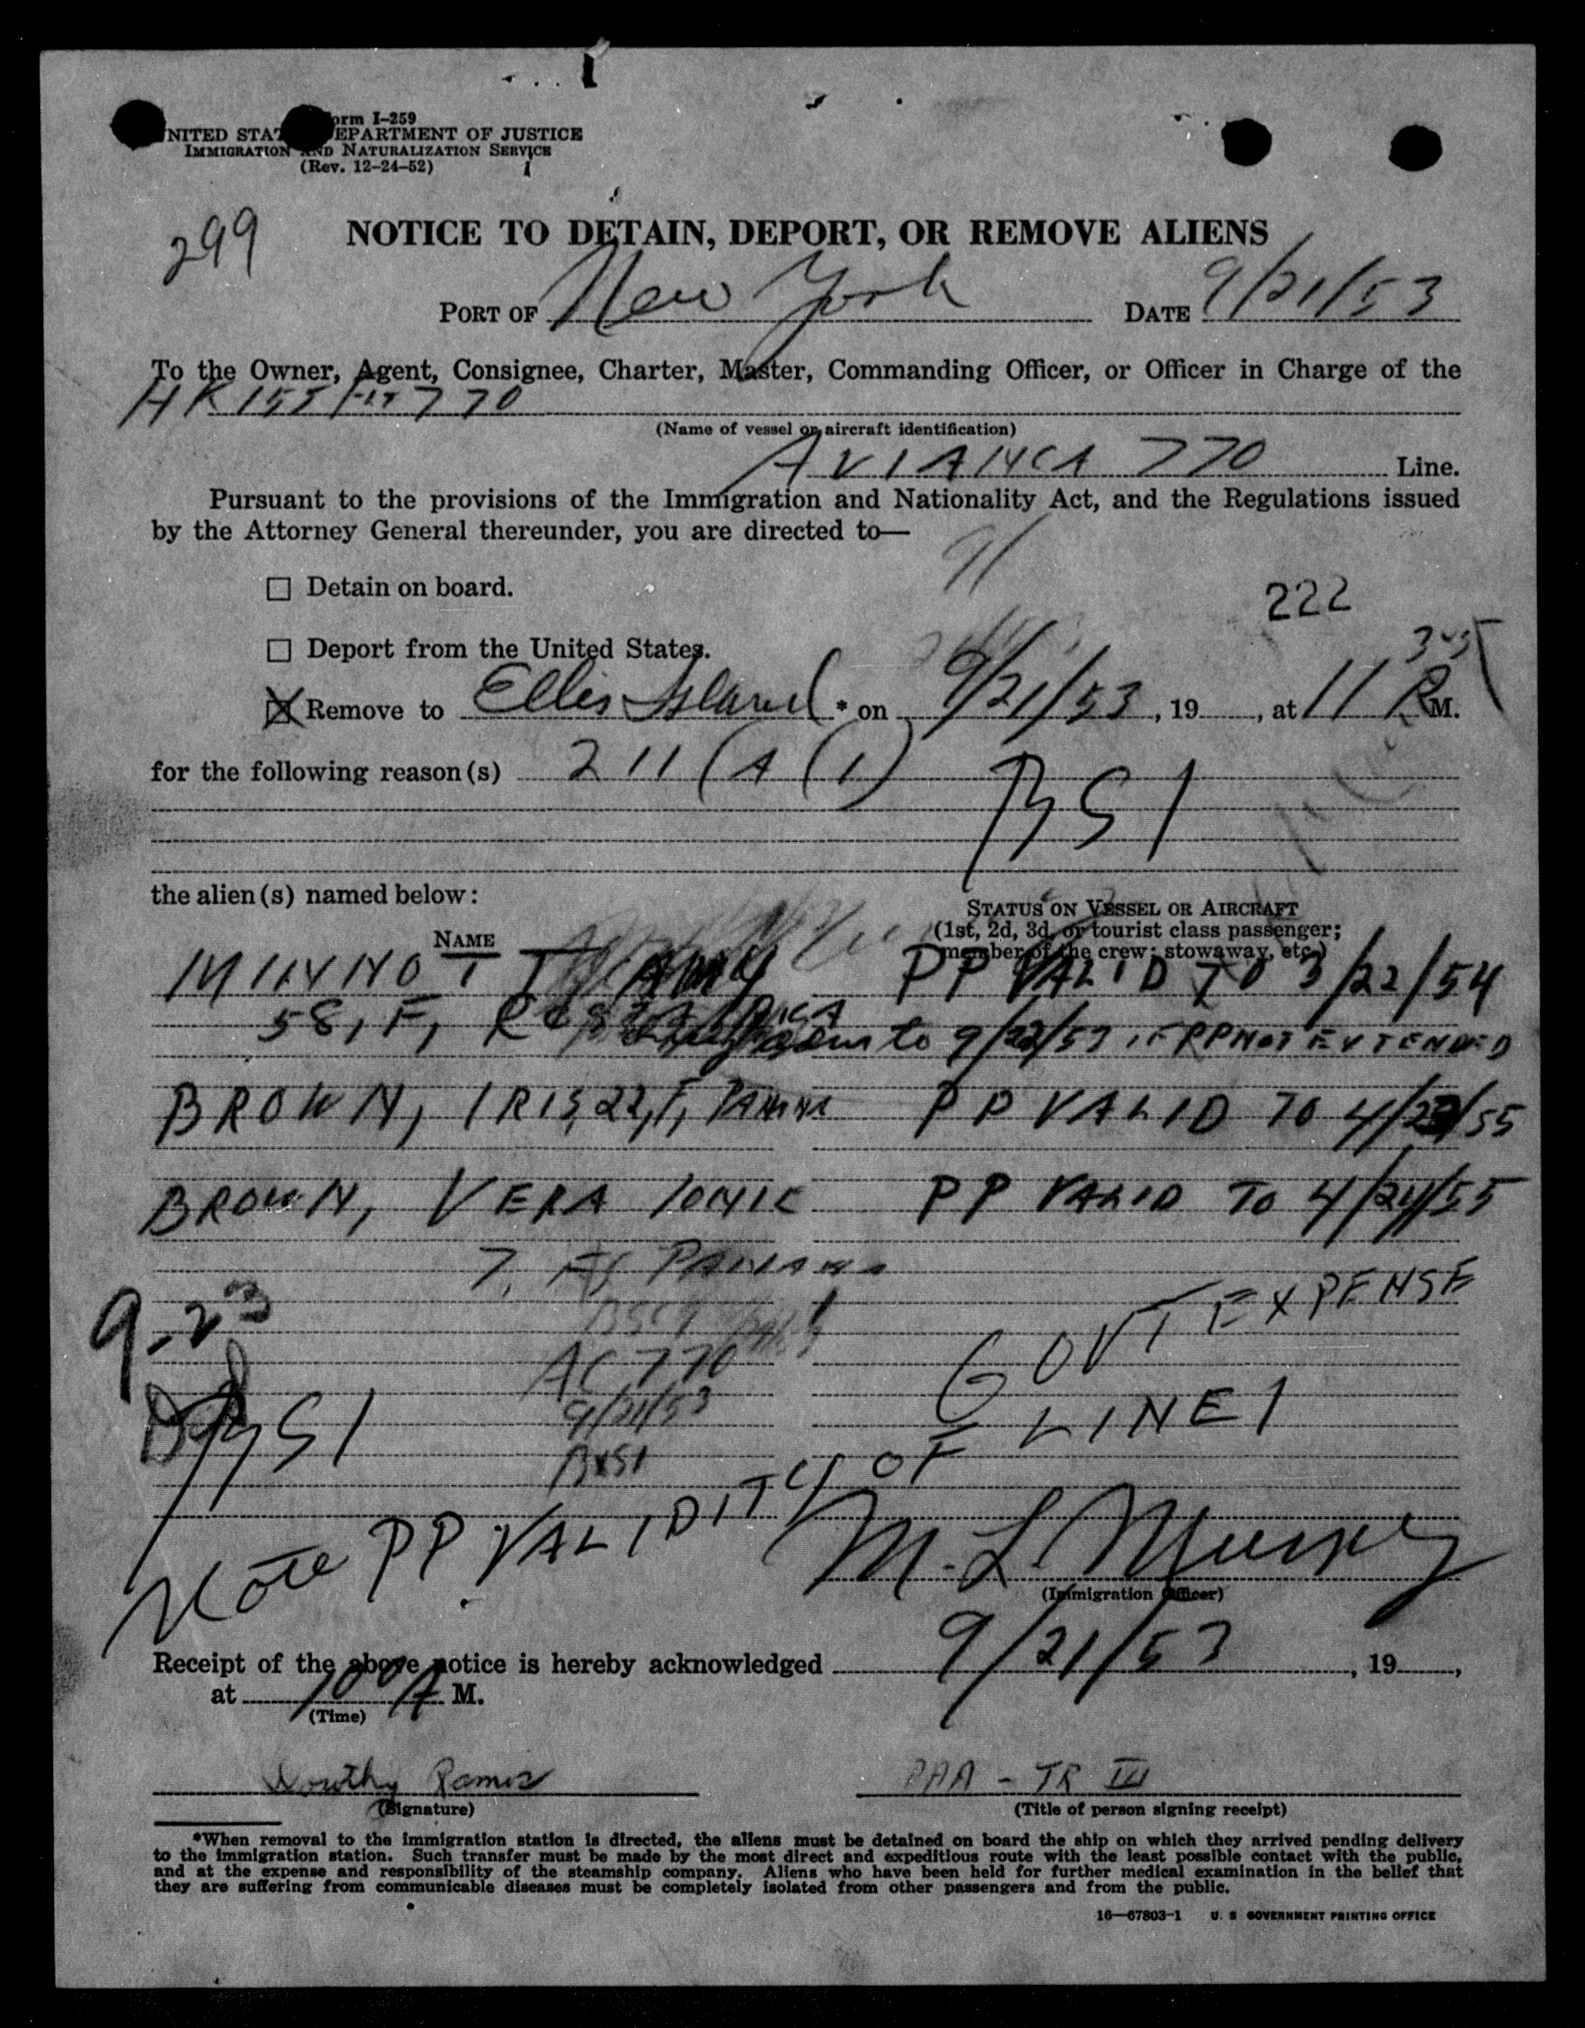 Form I-259
UNITED STATES DEPARTMENT OF JUSTICE
IMMIGRATION AND NATURALIZATION SERVICE
(Rev. 12-24-52)
299
NOTICE TO DETAIN, DEPORT, OR REMOVE ALIENS
PORT OF New York DATE 9/21/53
To the Owner, Agent, Consignee, Charter, Master, Commanding Officer, or Officer in Charge of the
HK 155 770
(Name of vessel or aircraft identification)
AVIANCA 770 Line.
Pursuant to the provisions of the Immigration and Nationality Act, and the Regulations issued
by the Attorney General thereunder, you are directed to—
9/
☐ Detain on board.
222
☐ Deport from the United States.
345
☒ Remove to Ellis Island * on 9/21/53, 19, at 11 M.
for the following reason(s) 211 (A (1)
BSI
the alien(s) named below:
STATUS ON VESSEL OR AIRCRAFT
(1st, 2d, 3d, or tourist class passenger;
member of the crew; stowaway, etc.)
NAME
AMY PP VALID TO 3/22/54
58, F, to 9/22/53 IF PP NOT EXTENDED
BROWN, IRIS, 22, F, PANAMA PP VALID TO 4/23/55
BROWN, VERA IONIE PP VALID TO 4/24/55
7, F, PANAMA
9-23
GOVT EXPENSE
AC 770
9/21/53
BSI
& LINE 1
BSI
Note PP VALIDITY OF
M. L. Murphy
(Immigration Officer)
Receipt of the above notice is hereby acknowledged 9/21/53, 19,
at 100 A M.
(Time)
Dorothy Ramos
PAA - TR III
(Signature)
(Title of person signing receipt)
*When removal to the immigration station is directed, the aliens must be detained on board the ship on which they arrived pending delivery
to the immigration station. Such transfer must be made by the most direct and expeditious route with the least possible contact with the public,
and at the expense and responsibility of the steamship company. Aliens who have been held for further medical examination in the belief that
they are suffering from communicable diseases must be completely isolated from other passengers and from the public.
16—67803-1 U. S. GOVERNMENT PRINTING OFFICE